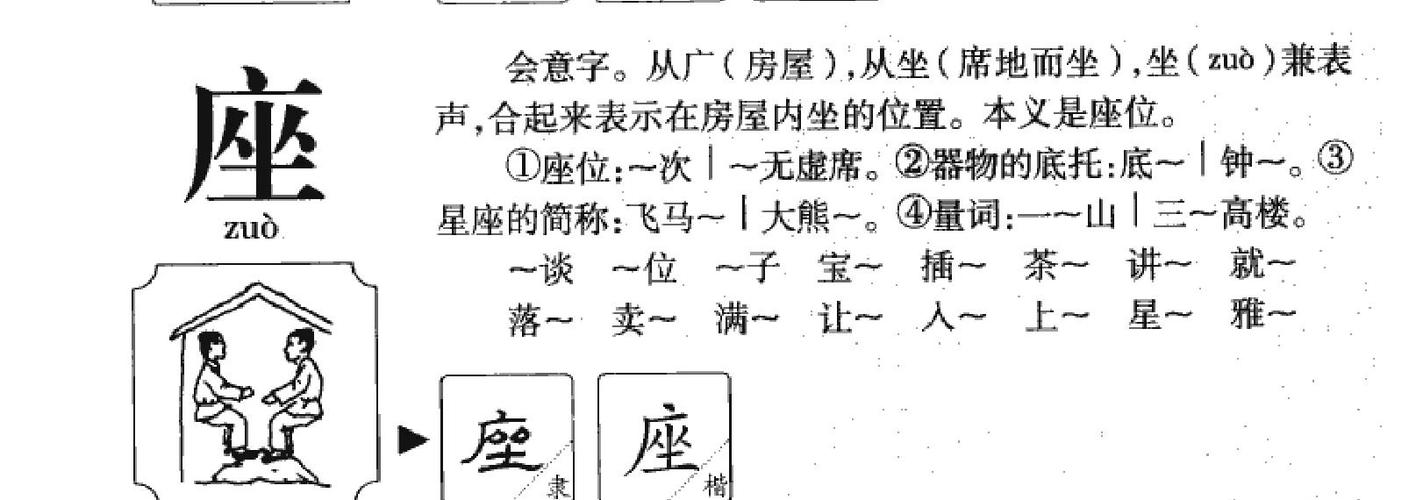 座
zuò
会意字。从广（房屋），从坐（席地而坐），坐（zuò）兼表
声，合起来表示在房屋内坐的位置。本义是座位。
①座位：～次｜～无虚席。②器物的底托：底～｜钟～。③
星座的简称：飞马～｜大熊～。④量词：一～山｜三～高楼。
～谈 ～位 ～子 宝～ 插～ 茶～ 讲～ 就～
落～ 卖～ 满～ 让～ 入～ 上～ 星～ 雅～
座 隶
座 楷